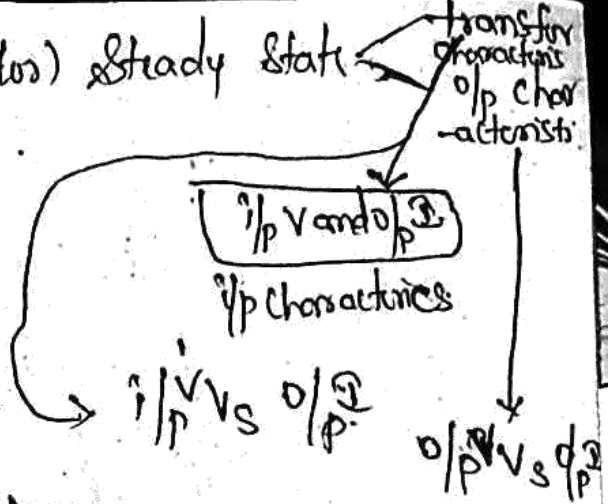 (or) Steady State
transfer
characteris
o/p char
-acteristi.
i/p V and o/p I
i/p characterics
i/p V Vs o/p I
o/p V Vs o/p I